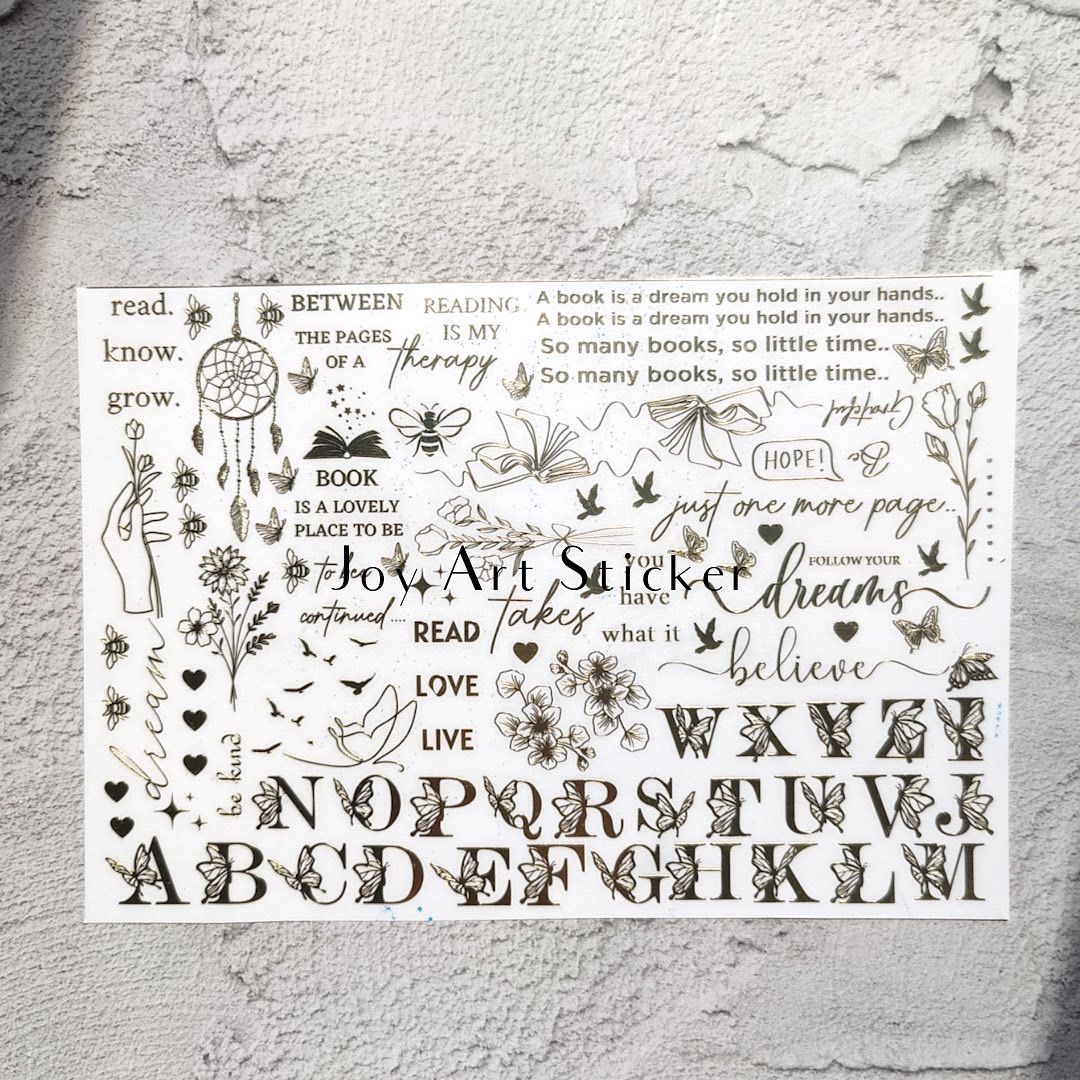 read.
know.
grow.
BETWEEN
THE PAGES
OF A
BOOK
IS A LOVELY
PLACE TO BE
READING
IS MY
therapy
A book is a dream you hold in your hands..
A book is a dream you hold in your hands..
So many books, so little time..
So many books, so little time..
Be
Grateful
HOPE!
just one more page..
Joy Art Sticker
to be
continued....
you
have
what it
takes
FOLLOW YOUR
dreams
believe
READ
LOVE
LIVE
dream
be kind
W X Y Z I
N O P Q R S T U V J
A B C D E F G H K L M